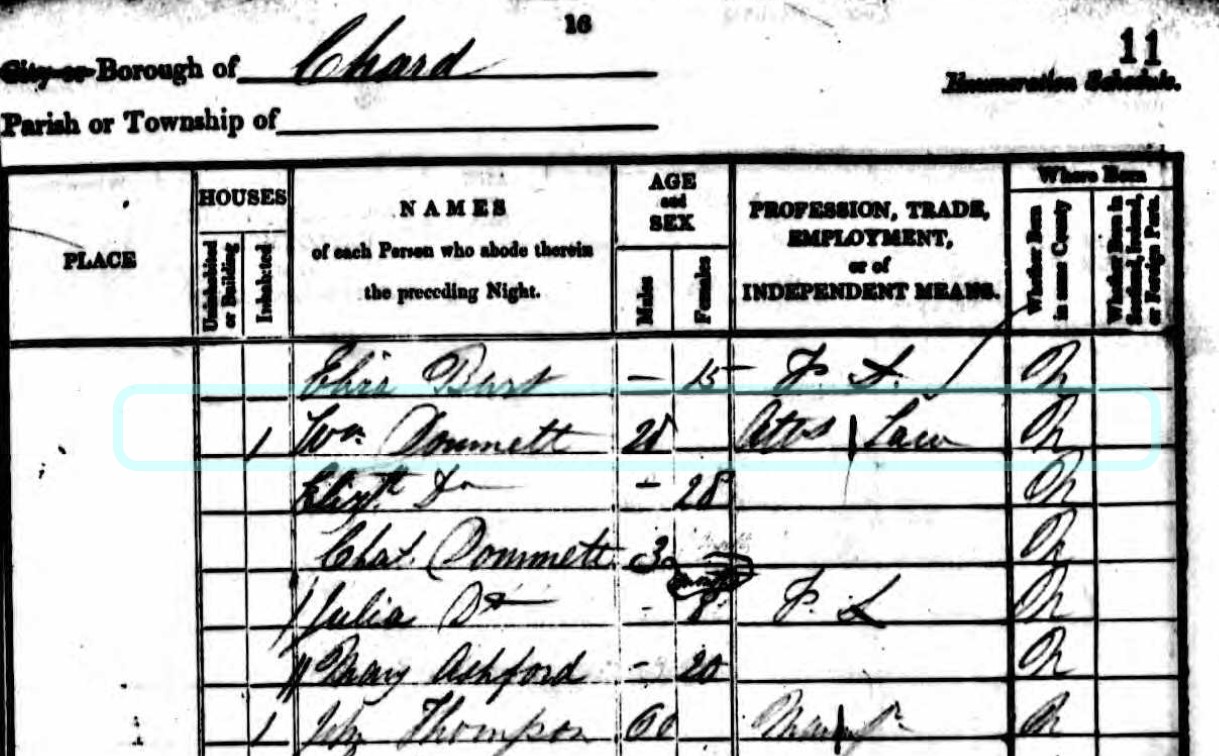 16
11
City or Borough of Chard
Enumeration Schedule.
Parish or Township of
PLACE
HOUSES
Uninhabited or Building
Inhabited
NAMES
of each Person who abode therein
the preceding Night.
AGE
and
SEX
Males
Females
PROFESSION, TRADE,
EMPLOYMENT,
or of
INDEPENDENT MEANS.
Where Born
Whether Born in same County
Whether Born in Scotland, Ireland, or Foreign Parts.
Eliza Burt - 15 F. S.
1 Wm Dommett 28 Law
Elizth Do - 28
Chas. Dommett 3
Julia Do - 8
Mary Ashford - 20
1 John Thompson 60